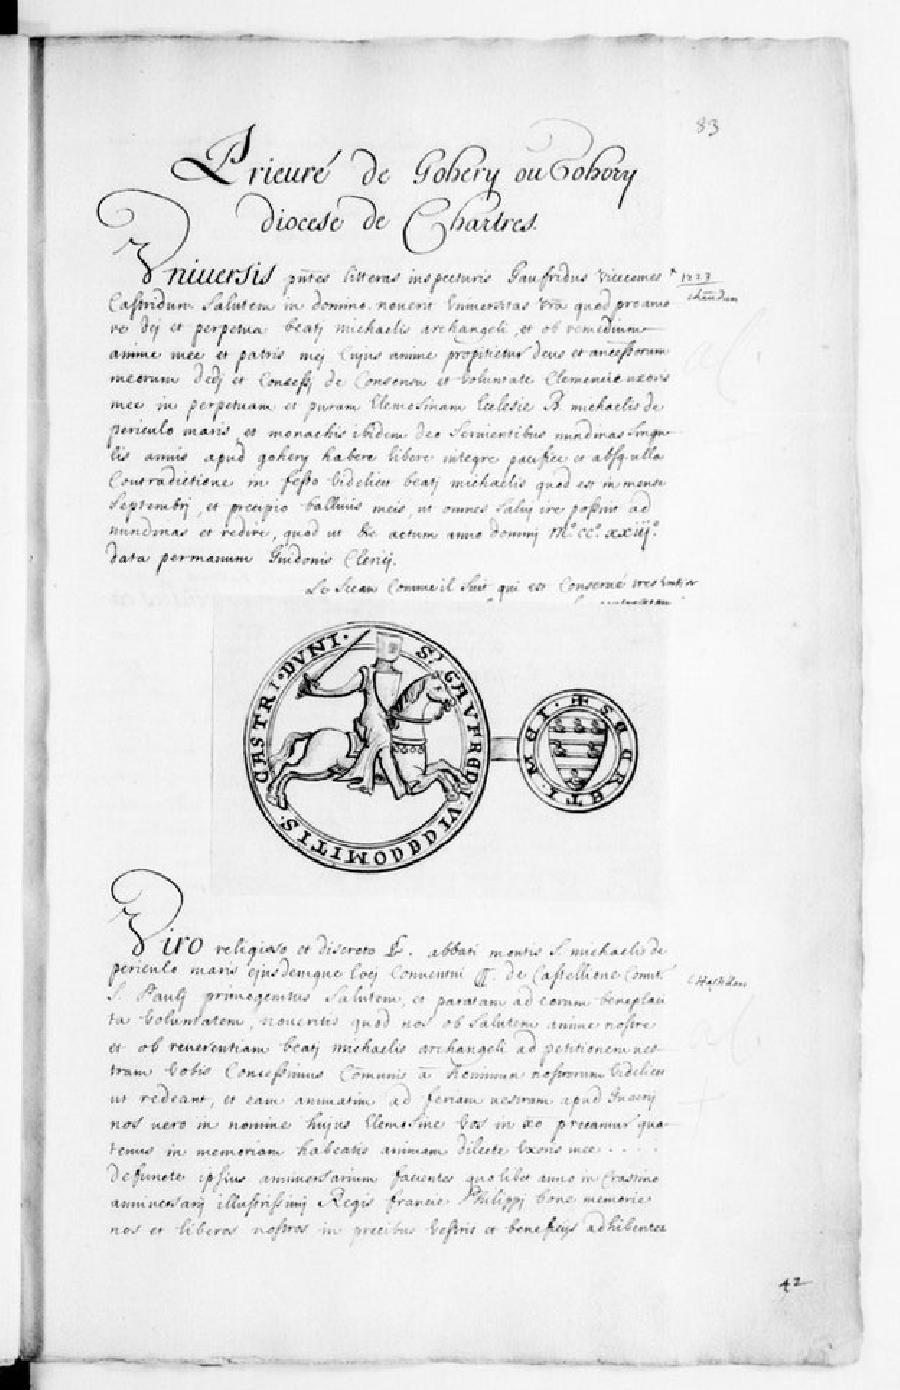 83
Prieuré de Gohery ou Gohory
diocese de Chartres.
Vniuersis pntes litteras inspecturis Gaufridus Vicecomes
1223
Castridun Salutem in domino. nouerit Vniuersitas vra quod pro amo
re dej et perpetua beatj michaelis archangeli, et ob remedium
anime mee et patris mej Cujus anime propitietur deus et ancessorum
meorum dedj et Concessj de Consensu et Voluntate Clemencie uxoris
mee in perpetuam et puram Elemosinam Ecclesie B. michaelis de
periculo maris et monachis ibidem deo Seruientibus nundinas Singu
lis annis apud gohery habere libere integre pacifice et absq ulla
Contradictione in festo Videlicet beatj michaelis quod est in mense
Septembrj, et precipio balliuis meis, ut omnes Saluj ire possint ad
nundinas et redire, quod ut &c actum anno dominj M° CC° XXiij°.
data per manum Guidonis Clericj.
Le Sceau Comme il Suit qui est Conserué
S'. GAVFREDI. VICECOMITIS. CASTRI. DVNI.
SECRETI. MEI.
Viro religioso et discreto R. abbati montis S. michaelis de
periculo maris ejusdemque locj Conuentui de Castellione Comit.
Chastillon
S. Paulj primogenitus Salutem, et paratam ad eorum beneplaci
ta Voluntatem, noueritis quod nos ob Salutem anime nostre
et ob reuerentiam beatj michaelis archangeli ad petitionem ues
tram Vobis Concessimus nostrorum Videlicet
ut redeant, et eam ad feriam uestram apud
nos uero in nomine hujus Elemosine Vos in xo precamur qua
tenus in memoriam habeatis animam dilecte Uxoris mee ....
defuncte ipsius anniuersarium facientes quolibet anno in Crastino
anniuersarij illustrissimj Regis francie Philippj bone memorie
nos et liberos nostros in precibus Vestris et beneficijs adhibentes
42